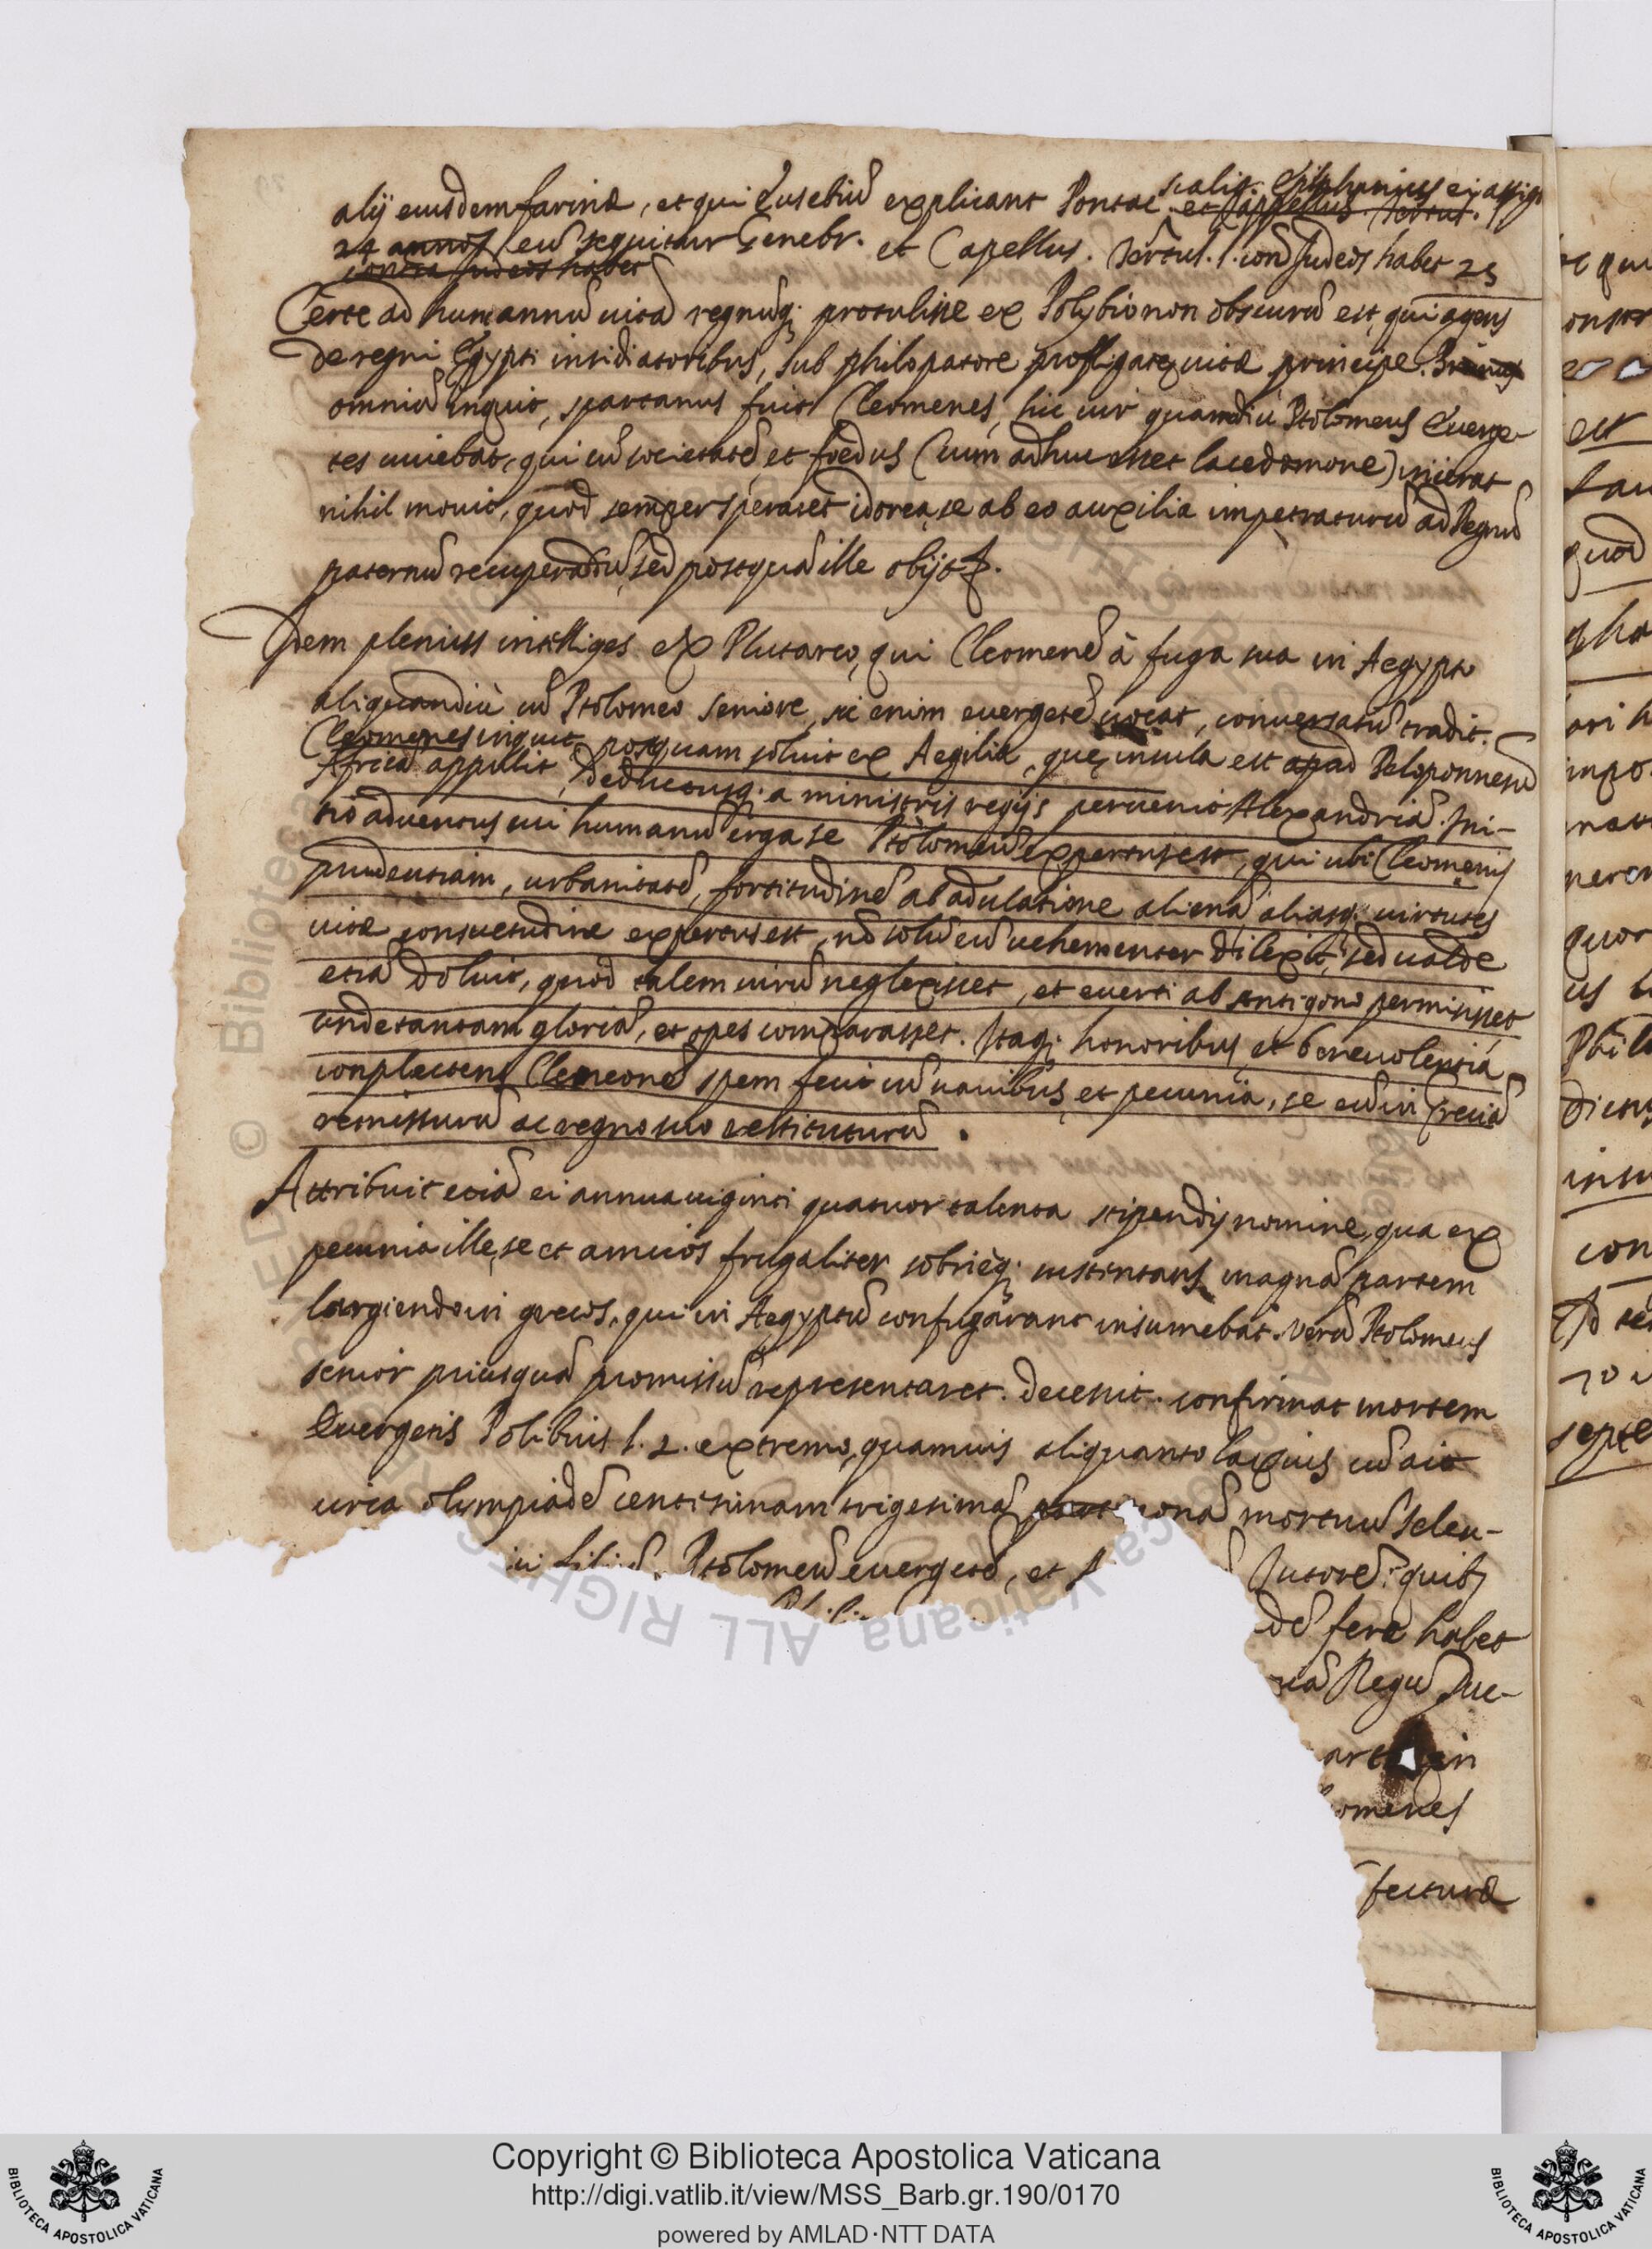 alij eiusdem farinæ, et qui Eusebiũ explicant Pontac. scalig. Epiphanius ei assign
et Cappellus. Tertul.
24 annos eũ sequitur Genebr. et Capellus. Tertul. l. con. Judeos habet 25
contra Judeos habet
Certe ad humannũ uitã regnũq; protulisse ex Polybio non obscurũ est, qui agens
de regni Egypti insidiatoribus, sub philopatore profligatę uitæ principe.
omniũ inquit, spartanus fuit Cleomenes, hic uir quamdiu Ptolomeus Euerge-
tes uiuebat, qui cũ societatẽ et fœdus (cum adhuc esset lacedæmone) inierat
nihil mouit, quod semper speraret idonea, se ab eo auxilia impetraturũ ad Regnũ
paternũ recuperadũ, sed postquã ille obijt &.
Idem plenius intelliges ex Plutarco, qui Cleomenẽ à fuga sua in Aegypto
aliquandiù cũ Ptolomeo seniore, sic enim euergetẽ uocat, conuersatũ tradit.
Cleomenes inquit posquam soluit ex Aegilia, quę insula est apad Peloponnesũ
Africã appulit, deductusq; a ministris regijs peruenit Alexandriã. Ini-
tio aduentus sui humanũ erga se Ptolomeũ expertus est, qui ubi Cleomenis
prudentiam, urbanitatẽ, fortitudinẽ ab adulatione alienã aliasq; uirtutes
uitæ consuetudine expertus est, nõ solũ eũ uehementer dilexit, sed ualde
etiã doluit, quod talem uirũ neglexisset, et euerti ab antigono permisisset
unde tantam gloriã, et opes comparasset. Itaq; honoribus, et beneuolentia
conplectens Cleneonẽ spem fecit cũ nauibus, et pecunia, se eũ in Greciã
remissurũ ac regno suo restituturũ.
Attribuit etiã ei annua uiginti quatuor talenta stipendij nomine, qua ex
pecunia ille, se et amicos frugaliter sobrieq; sustentans magnã partem
largiendo in grecos, qui in Aegyptũ confugarant insumebat. Verũ Ptolomeus
senior priusquã promissũ representaret. decessit. confirmat mortem
Euergetis Polibius l. 2. extremo, quamuis aliquanto laxius cũ ait
circa olympiadẽ centisimam trigesimã nonã mortuũ Seleu-
Ptolomeũ euergetẽ, et Jutorẽ: quib;
dẽ fere habet
Regũ Suc-
in
omenes
fecturæ